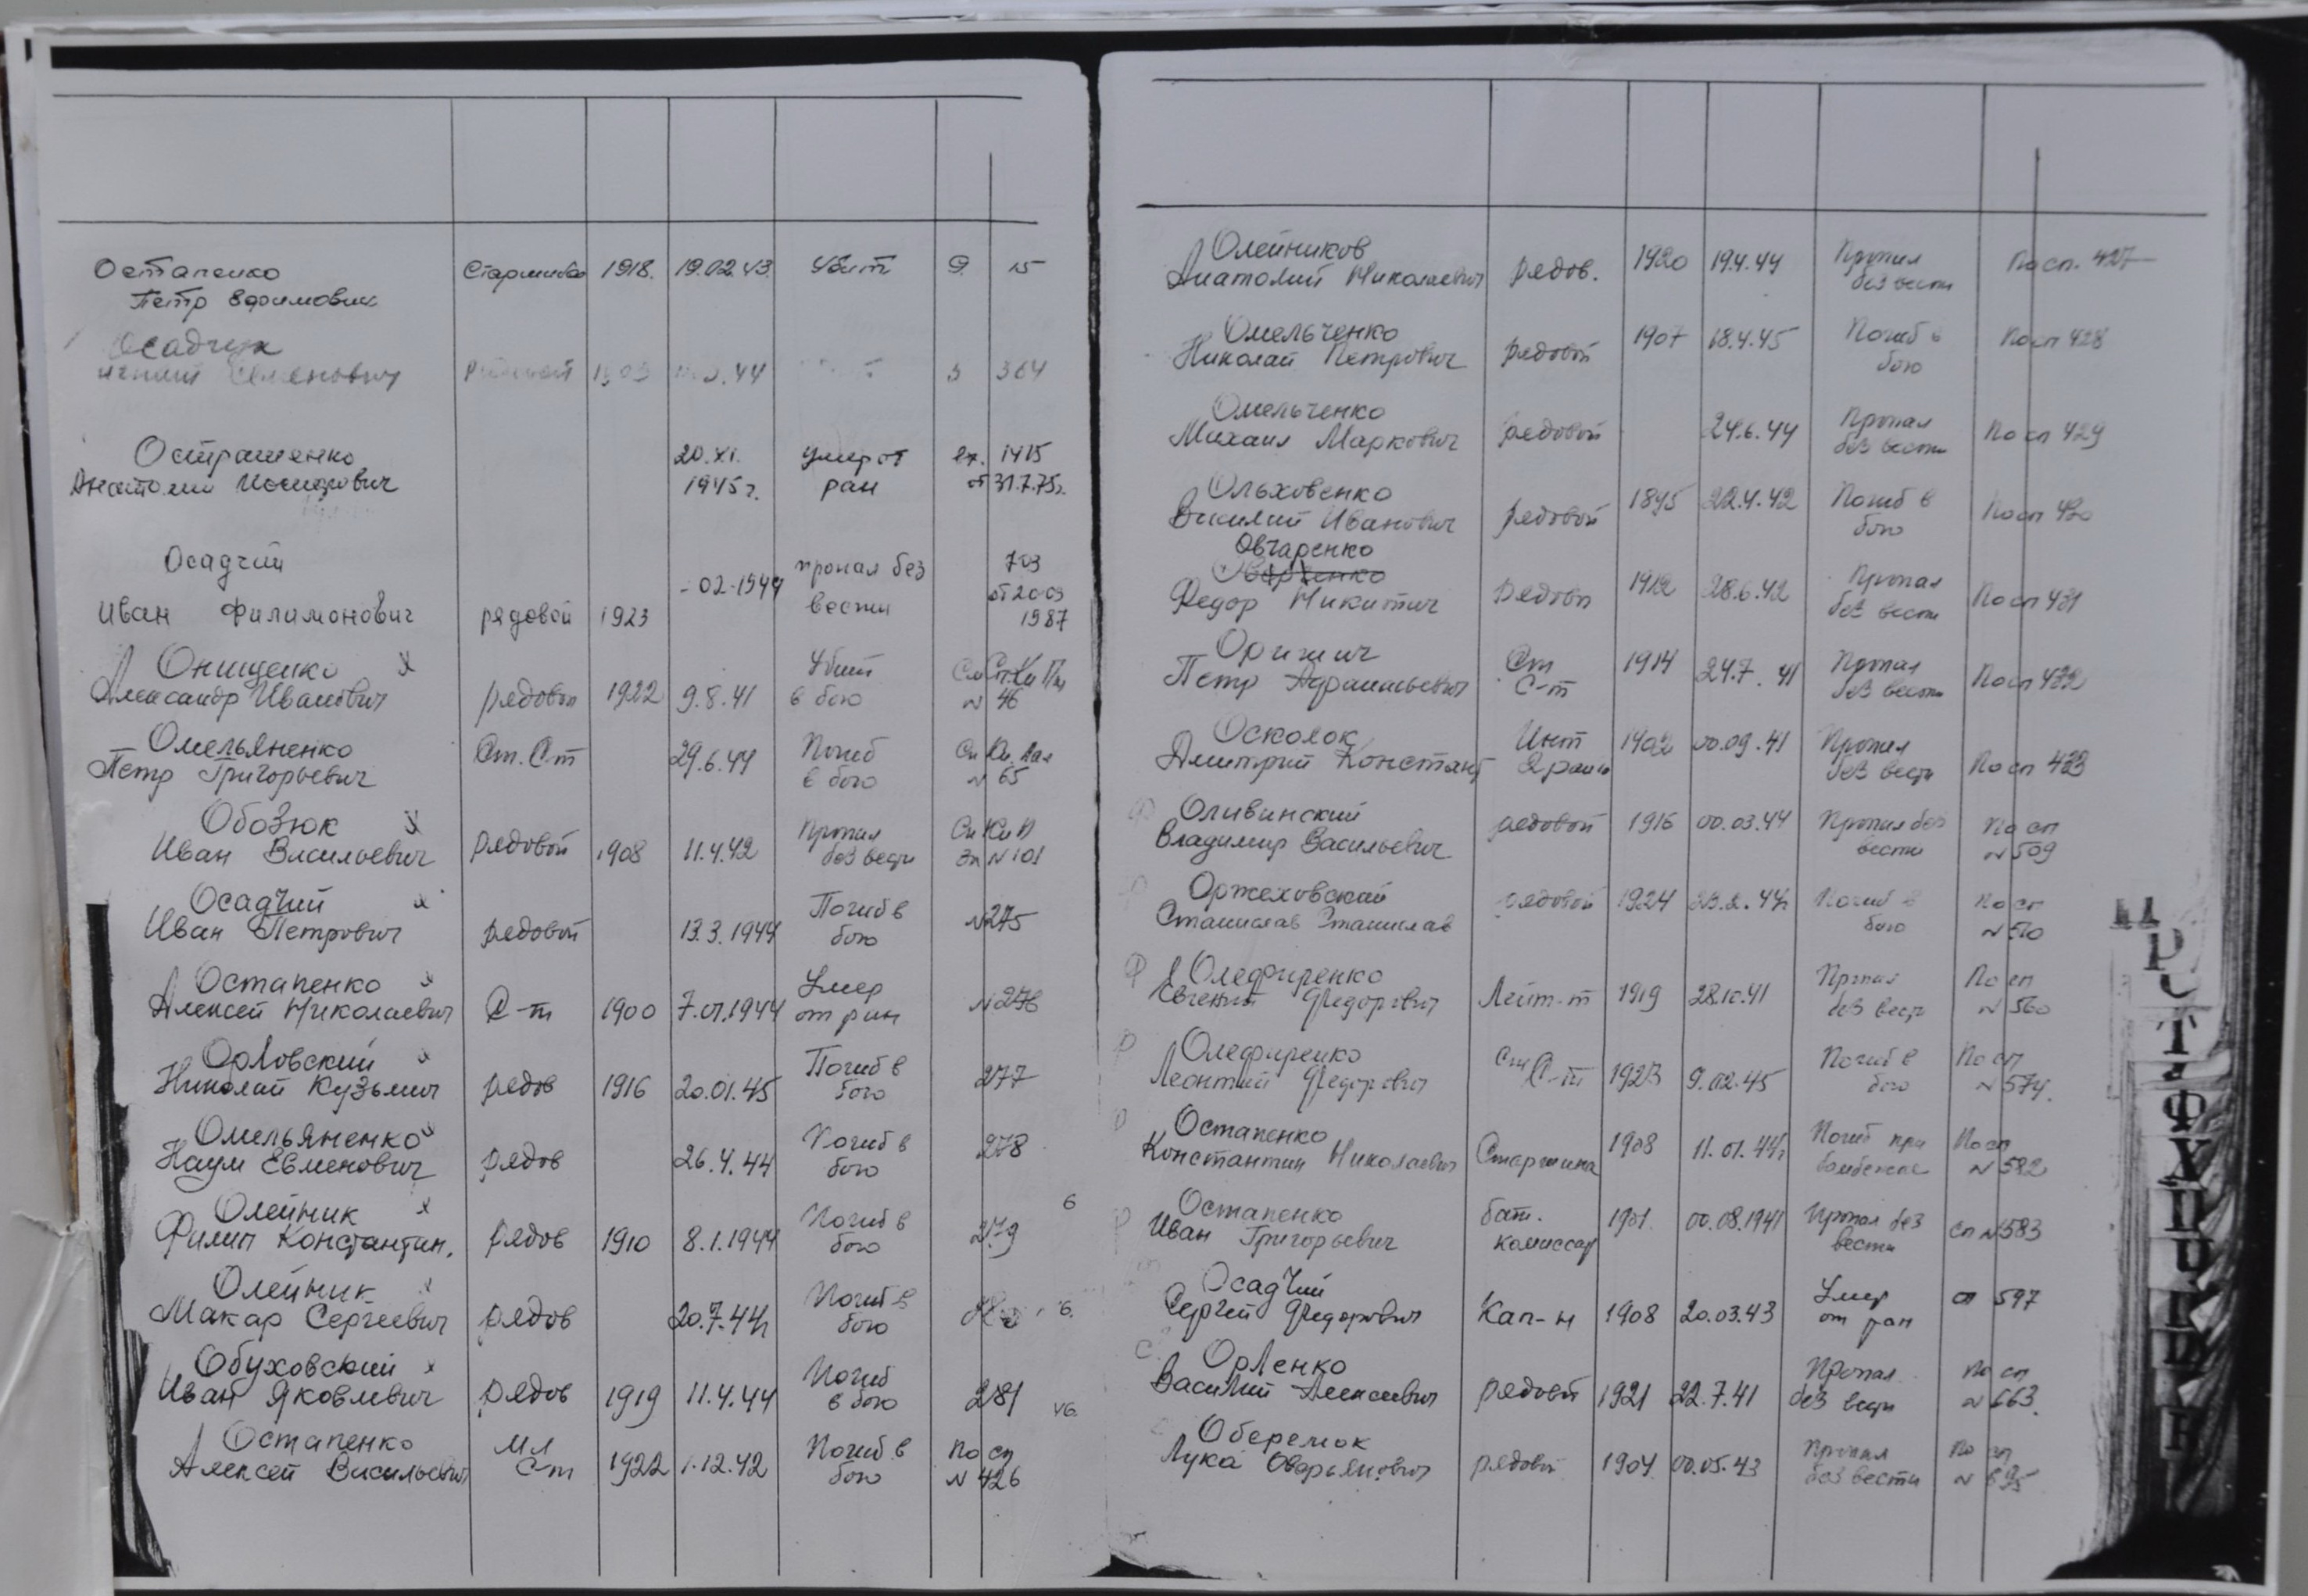 Остапенко Старшина 1918. 19.02.43 Убит 9. 15
Петр Ефимович
Осадчук
Семенович рядовой 44 3 364
Остращенко 20.XI. умер от 1415
Анатолий 1945 г. ран от 31.7.75г.
Осадчий пропал без 703
-02-1944 от 20.03
Иван Филимонович рядовой 1923 вести 1987
Онищенко х Убит
Александр Иванович рядовой 1922 9.8.41 в бою № 46
Омельяненко Ст. С-т Погиб
Петр Григорьевич 29.6.44 в бою № 65
Обозюк х Пропал
Иван Васильевич рядовой 1908 11.4.42 без вести № 101
Осадчий х Погиб в
Иван Петрович рядовой 13.3.1944 бою №275
Остапенко х Умер
Алексей Николаевич С-т 1900 7.01.1944 от ран №276
Орловский х Погиб в
Николай Кузьмич рядов 1916 20.01.45 бою 277
Омельяненко х Погиб в
Наум Евменович рядов 26.4.44 бою 278
Олейник х Погиб в
Филип Константин. рядов 1910 8.1.1944 бою 279
Олейник х Погиб в
Макар Сергеевич рядов 20.7.44г бою
Обуховский х Погиб
Иван Яковлевич рядов 1919 11.4.44 в бою 281
Остапенко Мл Погиб в по сп
Алексей Васильевич С-т 1922 1.12.42 бою № 426
6
6.
Олейников Пропал
Анатолий Николаевич рядов. 1920 19.4.44 без вести По сп. 427
Омельченко Погиб в
Николай Петрович рядовой 1907 18.4.45 бою По сп 428
Омельченко Пропал
Михаил Маркович рядовой 24.6.44 без вести По сп 429
Ольховенко Погиб в
Василий Иванович рядовой 1895 22.4.42 бою По сп 430
Овчаренко
Федор Никитич рядовой 1912 28.6.42 Пропал без вести По сп 431
Оришич Ст Пропал
Петр Афанасьевич С-т 1914 24.7.41 без вести По сп 432
Осколок Инт Пропал
Дмитрий Констант 2 ранга 1902 00.09.41 без вести По сп 433
Оливинский рядовой 1916 00.03.44 Пропал без По сп
Владимир Васильевич вести № 509
Оржеховский рядовой 1924 23.2.44г Погиб в По сп
Станислав Станислав бою № 510
Ф Олефиренко Пропал По сп
Евгений Федорович Лейт-т 1919 28.10.41 без вести № 560
Олефиренко Ст Погиб в По сп
Леонтий Федорович С-т 1923 9.02.45 бою № 574.
Остапенко 1908 11.01.44г Погиб при По сп
Константин Николаевич Старшина бомбежке № 582
Остапенко бат. 1901. 00.08.1941 Пропал без сп №583
Иван Григорьевич комиссар вести
Осадчий Умер сп 597
Сергей Федорович Кап-н 1908 20.03.43 от ран
Орленко Пропал по сп
Василий Алексеевич рядовой 1921 22.7.41 без вести № 663.
Оберемок Пропал по сп
Лука Оверьянович рядовой 1904 00.05.43 без вести
Р
С
Т
Ф
Х